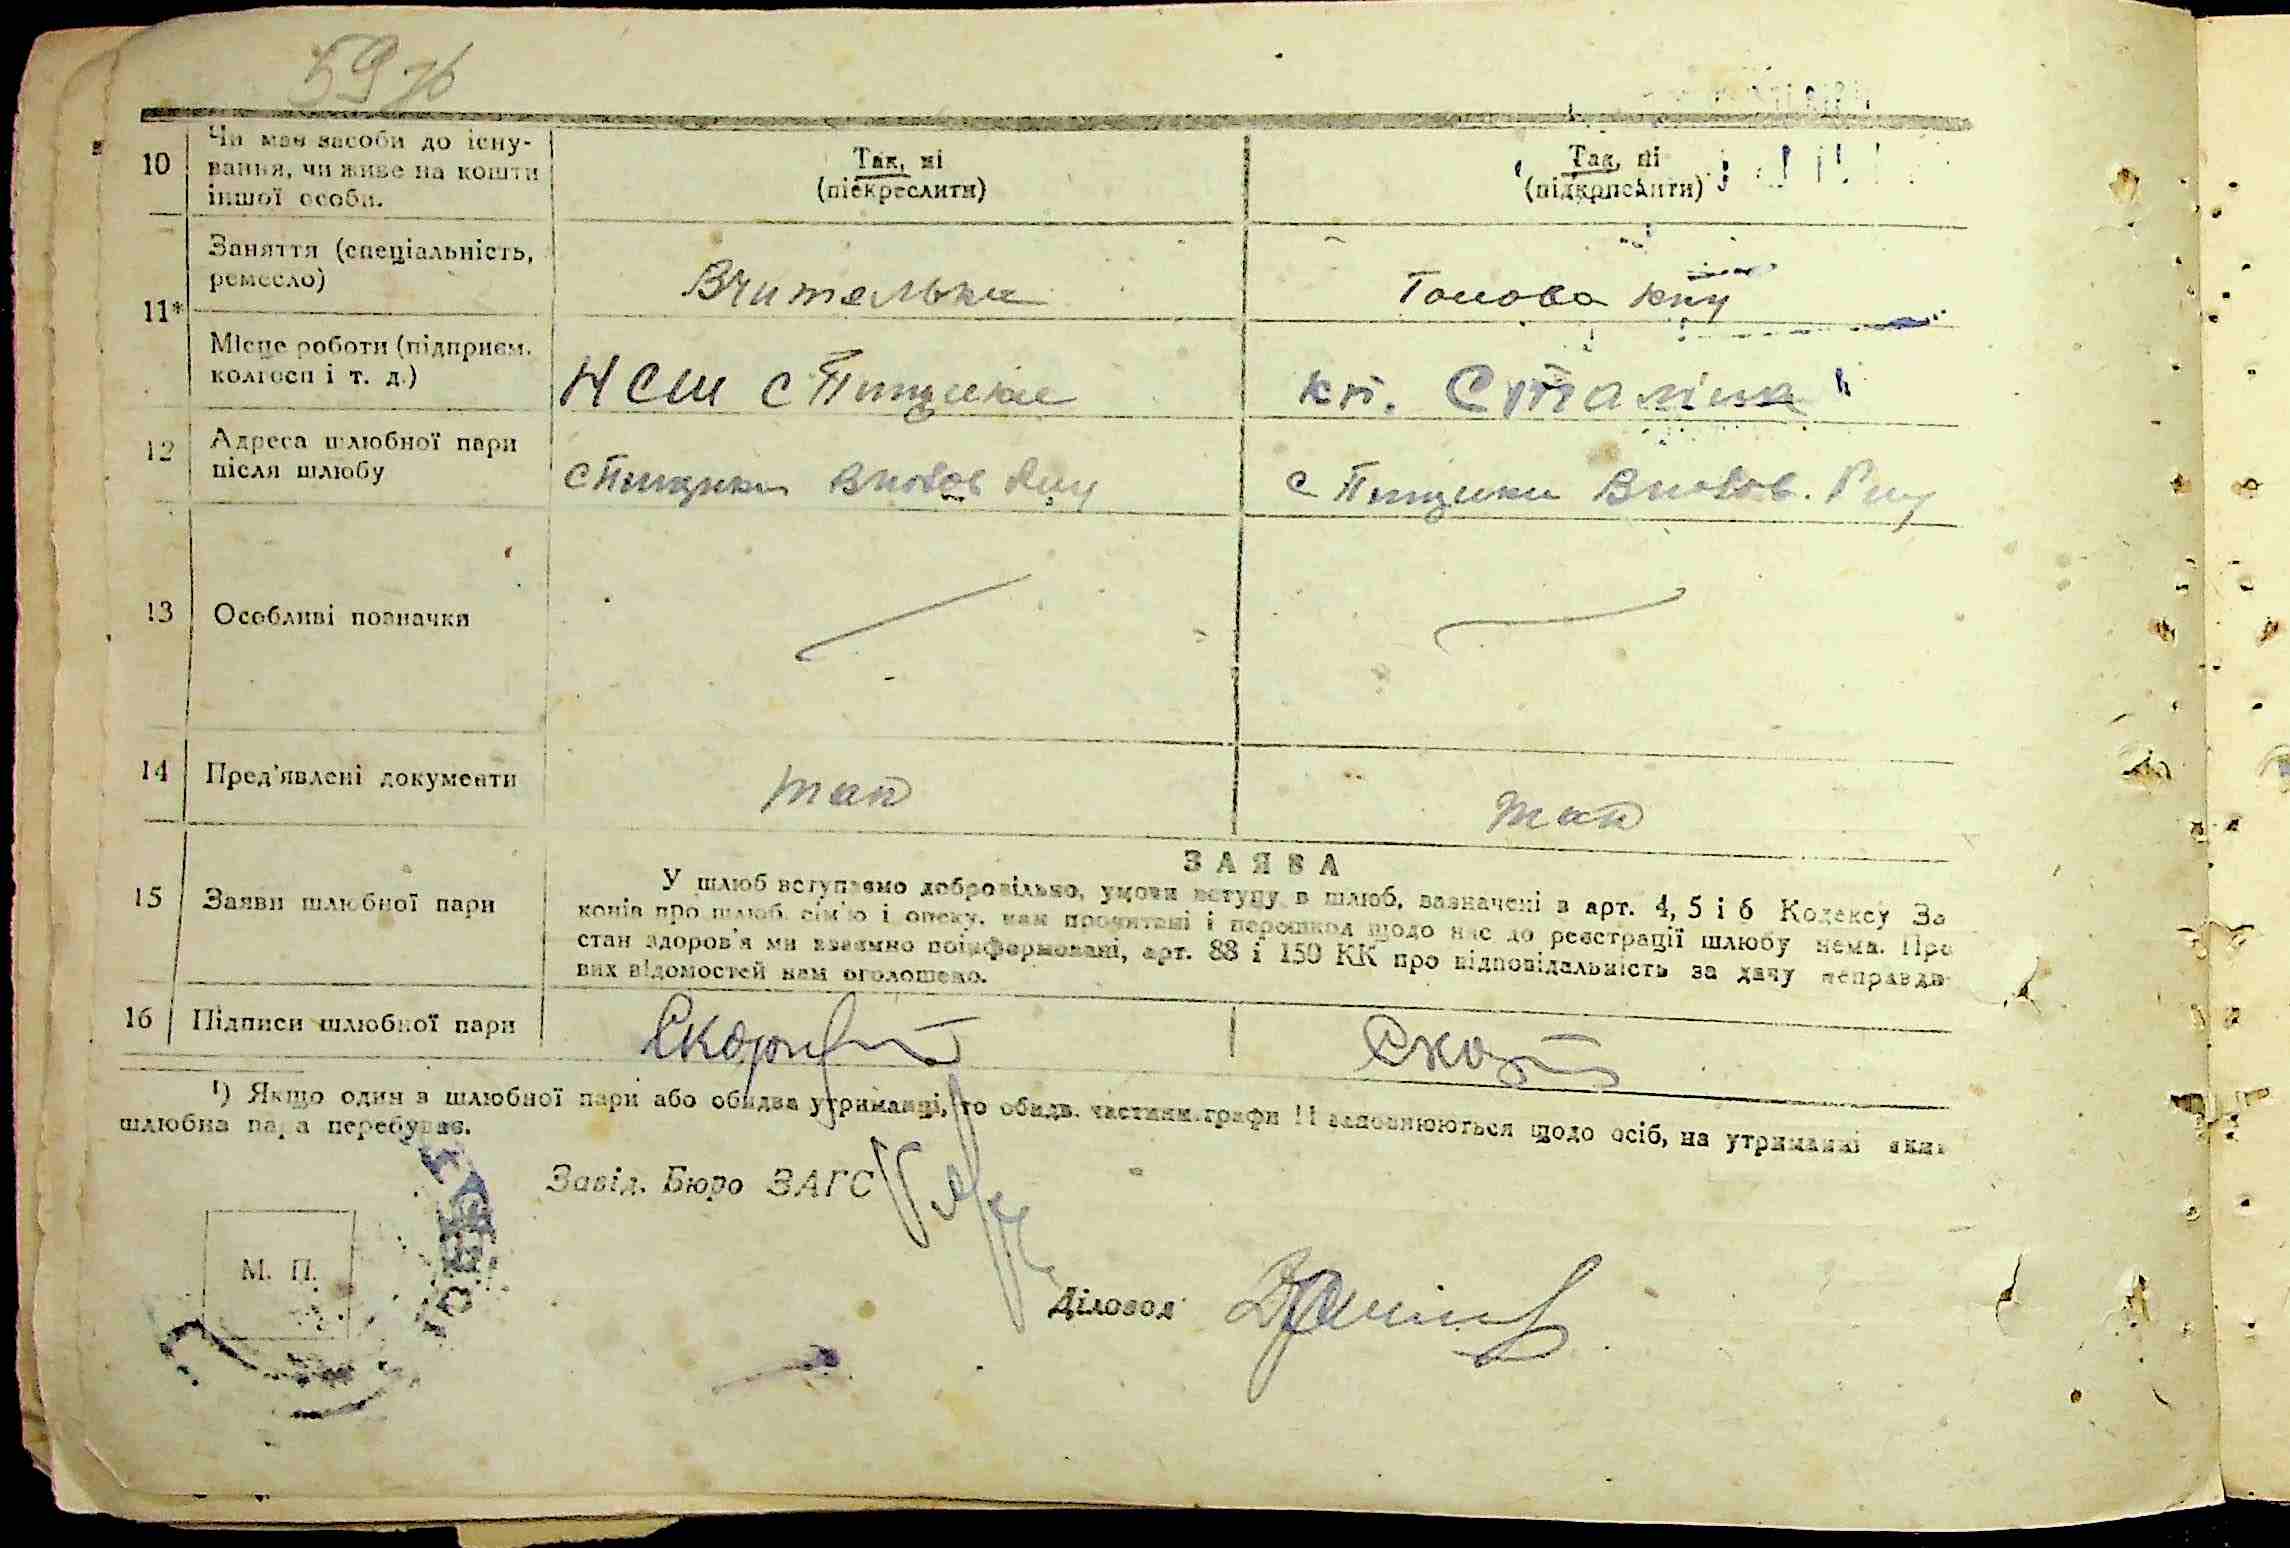 59
10
Чи має засоби до існу-
вання, чи живе на кошти
іншої особи.
Так, ні
(підкреслити)
Так, ні
(підкреслити)
11*
Заняття (спеціальність,
ремесло)
Вчителька
Голова кпу
Місце роботи (підприєм.
колгосп і т. д.)
НСШ с Пищики
кп. Сталіна
12
Адреса шлюбної пари
після шлюбу
с Пищики
с Пищики
13
Особливі позначки
14
Пред'явлені документи
15
Заяви шлюбної пари
ЗАЯВА
У шлюб вступаємо добровільно, умови вступу в шлюб, зазначені в арт. 4, 5 і 6 Кодексу За
конів про шлюб, сім'ю і опеку, нам прочитані і перешкод щодо нас до реєстрації шлюбу нема. Про
стан здоров'я ми взаємно поінформовані, арт. 88 і 150 КК про відповідальність за дачу неправди-
вих відомостей нам оголошено.
16
Підписи шлюбної пари
¹) Якщо один з шлюбної пари або обидва утриманці, то обидв. частини графи 11 заповнюються щодо осіб, на утриманні яких
шлюбна пара перебуває.
Завід. Бюро ЗАГС
М. П.
Діловод